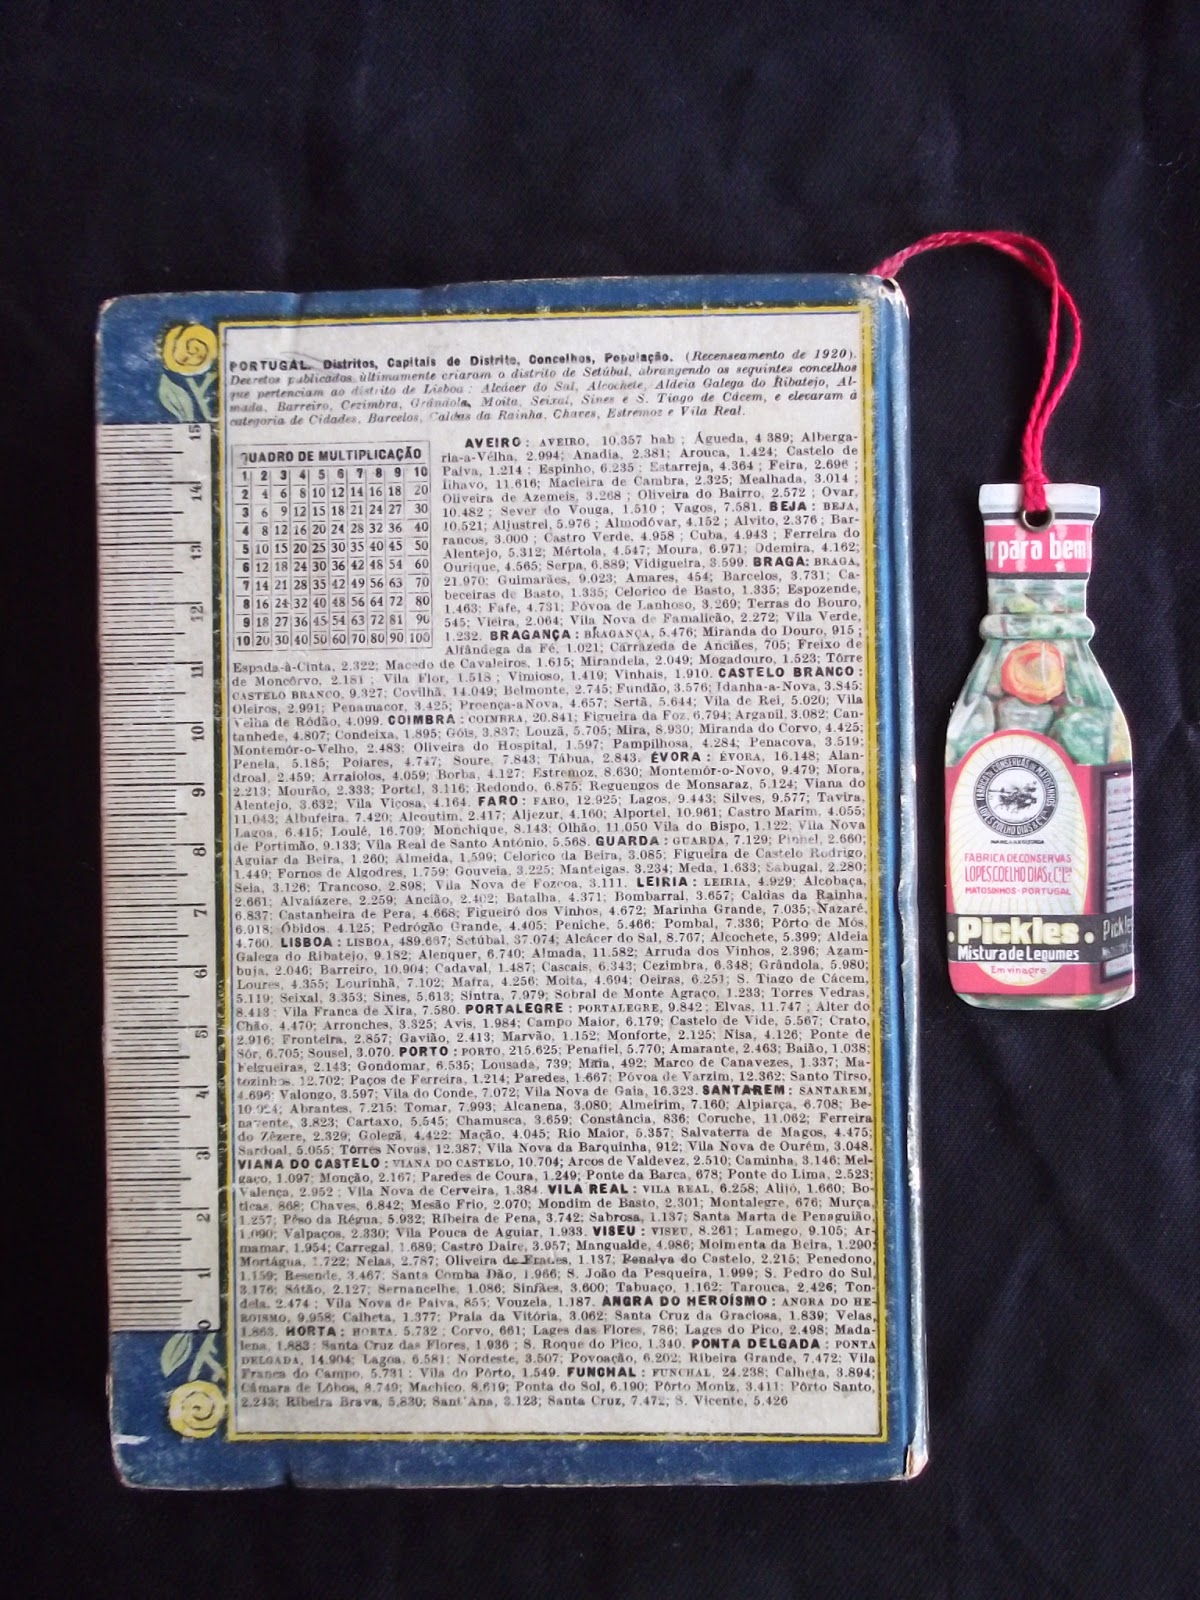 PORTUGAL. Distritos, Capitais de Distrito, Concelhos, População. (Recenseamento de 1920).
Decretos publicados últimamente criaram o distrito de Setúbal, abrangendo os seguintes concelhos
que pertenciam ao distrito de Lisboa: Alcácer do Sal, Alcochete, Aldeia Galega do Ribatejo, Al-
mada, Barreiro, Cezimbra, Grândola, Moita, Seixal, Sines e S. Tiago de Cácem, e elevaram à
categoria de Cidades, Barcelos, Caldas da Rainha, Chaves, Estremoz e Vila Real.
QUADRO DE MULTIPLICAÇÃO
1 2 3 4 5 6 7 8 9 10
2 4 6 8 10 12 14 16 18 20
3 6 9 12 15 18 21 24 27 30
4 8 12 16 20 24 28 32 36 40
5 10 15 20 25 30 35 40 45 50
6 12 18 24 30 36 42 48 54 60
7 14 21 28 35 42 49 56 63 70
8 16 24 32 40 48 56 64 72 80
9 18 27 36 45 54 63 72 81 90
10 20 30 40 50 60 70 80 90 100
AVEIRO: AVEIRO, 10.357 hab; Águeda, 4 389; Alberga-
ria-a-Vélha, 2.994; Anadia, 2.381; Arouca, 1.424; Castelo de
Paiva, 1.214; Espinho, 6.235; Estarreja, 4.364; Feira, 2.696;
Ilhavo, 11.616; Macieira de Cambra, 2.325; Mealhada, 3.014;
Oliveira de Azemeis, 3.268; Oliveira do Bairro, 2.572; Ovar,
10.482; Sever do Vouga, 1.510; Vagos, 7.581. BEJA: BEJA,
10.521; Aljustrel, 5.976; Almodóvar, 4.152; Alvito, 2.376; Bar-
rancos, 3.000; Castro Verde, 4.958; Cuba, 4.943; Ferreira do
Alentejo, 5.312; Mértola, 4.547; Moura, 6.971; Odemira, 4.162;
Ourique, 4.565; Serpa, 6.889; Vidigueira, 3.599. BRAGA: BRAGA,
21.970; Guimarães, 9.023; Amares, 454; Barcelos, 3.731; Ca-
beceiras de Basto, 1.335; Celorico de Basto, 1.335; Espozende,
1.463; Fafe, 4.731; Póvoa de Lanhoso, 3.269; Terras do Bouro,
545; Vieira, 2.064; Vila Nova de Famalicão, 2.272; Vila Verde,
1.232. BRAGANÇA: BRAGANÇA, 5.476; Miranda do Douro, 915;
Alfândega da Fé, 1.021; Carrazeda de Anciães, 705; Freixo de
Espada-à-Cinta, 2.322; Macedo de Cavaleiros, 1.615; Mirandela, 2.049; Mogadouro, 1.523; Tôrre
de Moncôrvo, 2.181; Vila Flor, 1.518; Vimioso, 1.419; Vinhais, 1.910. CASTELO BRANCO:
CASTELO BRANCO, 9.327; Covilhã, 14.049; Belmonte, 2.745; Fundão, 3.576; Idanha-a-Nova, 3.845;
Oleiros, 2.991; Penamacor, 3.425; Proença-a-Nova, 4.657; Sertã, 5.644; Vila de Rei, 5.020; Vila
Velha de Ródão, 4.099. COIMBRA: COIMBRA, 20.841; Figueira da Foz, 6.794; Arganil, 3.082; Can-
tanhede, 4.807; Condeixa, 1.895; Góis, 3.837; Louzã, 5.705; Mira, 8.930; Miranda do Corvo, 4.425;
Montemór-o-Velho, 2.483; Oliveira do Hospital, 1.597; Pampilhosa, 4.284; Penacova, 3.519;
Penela, 5.185; Poiares, 4.747; Soure, 7.843; Tábua, 2.843. ÉVORA: ÉVORA, 16.148; Alan-
droal, 2.459; Arraiolos, 4.059; Borba, 4.127; Estremoz, 8.630; Montemór-o-Novo, 9.479; Mora,
2.213; Mourão, 2.333; Portel, 3.116; Redondo, 6.875; Reguengos de Monsaraz, 5.124; Viana do
Alentejo, 3.632; Vila Viçosa, 4.164. FARO: FARO, 12.925; Lagos, 9.443; Silves, 9.577; Tavira,
11.043; Albufeira, 7.420; Alcoutim, 2.417; Aljezur, 4.160; Alportel, 10.961; Castro Marim, 4.055;
Lagoa, 6.415; Loulé, 16.709; Monchique, 8.143; Olhão, 11.050 Vila do Bispo, 1.122; Vila Nova
de Portimão, 9.133; Vila Real de Santo António, 5.568. GUARDA: GUARDA, 7.129; Pinhel, 2.660;
Aguiar da Beira, 1.260; Almeida, 1.599; Celorico da Beira, 3.085; Figueira de Castelo Rodrigo,
1.449; Fornos de Algodres, 1.759; Gouveia, 3.225; Manteigas, 3.234; Meda, 1.633; Sabugal, 2.280;
Seia, 3.126; Trancoso, 2.898; Vila Nova de Fozcoa, 3.111. LEIRIA: LEIRIA, 4.929; Alcobaça,
2.661; Alvaiázere, 2.259; Ancião, 2.402; Batalha, 4.371; Bombarral, 3.657; Caldas da Rainha,
6.837; Castanheira de Pera, 4.668; Figueiró dos Vinhos, 4.672; Marinha Grande, 7.035; Nazaré,
6.918; Óbidos, 4.125; Pedrógão Grande, 4.405; Peniche, 5.466; Pombal, 7.336; Pôrto de Mós,
4.760. LISBOA: LISBOA, 489.667; Setúbal, 37.074; Alcácer do Sal, 8.767; Alcochete, 5.399; Aldeia
Galega do Ribatejo, 9.182; Alenquer, 6.740; Almada, 11.582; Arruda dos Vinhos, 2.396; Azam-
buja, 2.046; Barreiro, 10.904; Cadaval, 1.487; Cascais, 6.343; Cezimbra, 6.348; Grândola, 5.980;
Loures, 4.355; Lourinhã, 7.102; Mafra, 4.256; Moita, 4.694; Oeiras, 6.251; S. Tiago de Cácem,
5.119; Seixal, 3.353; Sines, 5.613; Sintra, 7.979; Sobral de Monte Agraço, 1.233; Torres Vedras,
8.413; Vila Franca de Xira, 7.580. PORTALEGRE: PORTALEGRE, 9.842; Elvas, 11.747; Alter do
Chão, 4.470; Arronches, 3.325; Avis, 1.984; Campo Maior, 6.179; Castelo de Vide, 5.567; Crato,
2.916; Fronteira, 2.857; Gavião, 2.413; Marvão, 1.152; Monforte, 2.125; Nisa, 4.126; Ponte de
Sôr, 6.705; Sousel, 3.070. PORTO: PORTO, 215.625; Penafiel, 5.770; Amarante, 2.463; Baião, 1.038;
Felgueiras, 2.143; Gondomar, 6.535; Lousada, 739; Maia, 492; Marco de Canavezes, 1.337; Ma-
tozinhos, 12.702; Paços de Ferreira, 1.214; Paredes, 1.667; Póvoa de Varzim, 12.362; Santo Tirso,
4.696; Valongo, 3.597; Vila do Conde, 7.072; Vila Nova de Gaia, 16.323. SANTAREM: SANTAREM,
10.924; Abrantes, 7.215; Tomar, 7.993; Alcanena, 3.080; Almeirim, 7.160; Alpiarça, 6.708; Be-
navente, 3.823; Cartaxo, 5.545; Chamusca, 3.659; Constância, 836; Coruche, 11.062; Ferreira
do Zêzere, 2.329; Golegã, 4.422; Mação, 4.045; Rio Maior, 5.357; Salvaterra de Magos, 4.475;
Sardoal, 5.055; Tôrres Novas, 12.387; Vila Nova da Barquinha, 912; Vila Nova de Ourém, 3.048.
VIANA DO CASTELO: VIANA DO CASTELO, 10.704; Arcos de Valdevez, 2.510; Caminha, 3.146; Mel-
gaço, 1.097; Monção, 2.167; Paredes de Coura, 1.249; Ponte da Barca, 678; Ponte do Lima, 2.523;
Valença, 2.952; Vila Nova de Cerveira, 1.384. VILA REAL: VILA REAL, 6.258; Alijó, 1.660; Bo-
ticas, 868; Chaves, 6.842; Mesão Frio, 2.070; Mondim de Basto, 2.301; Montalegre, 676; Murça,
1.257; Pêso da Régua, 5.932; Ribeira de Pena, 3.742; Sabrosa, 1.137; Santa Marta de Penaguião,
1.090; Valpaços, 2.330; Vila Pouca de Aguiar, 1.933. VISEU: VISEU, 8.261; Lamego, 9.105; Ar-
mamar, 1.954; Carregal, 1.689; Castro Daire, 3.957; Mangualde, 4.986; Moimenta da Beira, 1.290;
Mortágua, 1.722; Nelas, 2.787; Oliveira de Frades, 1.137; Penalva do Castelo, 2.215; Penedono,
1.159; Resende, 3.467; Santa Comba Dão, 1.966; S. João da Pesqueira, 1.999; S. Pedro do Sul,
3.176; Sátão, 2.127; Sernancelhe, 1.086; Sinfães, 3.600; Tabuaço, 1.162; Tarouca, 2.426; Ton-
dela, 2.474; Vila Nova de Paiva, 855; Vouzela, 1.187. ANGRA DO HEROÍSMO: ANGRA DO HE-
ROISMO, 9.958; Calheta, 1.377; Praia da Vitória, 3.062; Santa Cruz da Graciosa, 1.839; Velas,
1.863. HORTA: HORTA, 5.732; Corvo, 661; Lages das Flores, 786; Lages do Pico, 2.498; Mada-
lena, 1.883; Santa Cruz das Flores, 1.936; S. Roque do Pico, 1.340. PONTA DELGADA: PONTA
DELGADA, 14.904; Lagoa, 6.581; Nordeste, 3.507; Povoação, 6.202; Ribeira Grande, 7.472; Vila
Franca do Campo, 5.731; Vila do Pôrto, 1.549. FUNCHAL: FUNCHAL, 24.238; Calheta, 3.894;
Câmara de Lôbos, 8.749; Machico, 8.619; Ponta do Sol, 6.190; Pôrto Moniz, 3.411; Pôrto Santo,
2.243; Ribeira Brava, 5.830; Sant'Ana, 3.123; Santa Cruz, 7.472; S. Vicente, 5.426
15
14
13
12
11
10
9
8
7
6
5
4
3
2
1
0
r para bem
FABRICA DE CONSERVAS DE MATOSINHOS
LOPES COELHO DIAS
MARCA REGISTADA
FABRICA DE CONSERVAS
LOPES, COELHO DIAS & Cª Lda
MATOSINHOS-PORTUGAL
Pickles
Mistura de Legumes
Em vinagre
Pickle